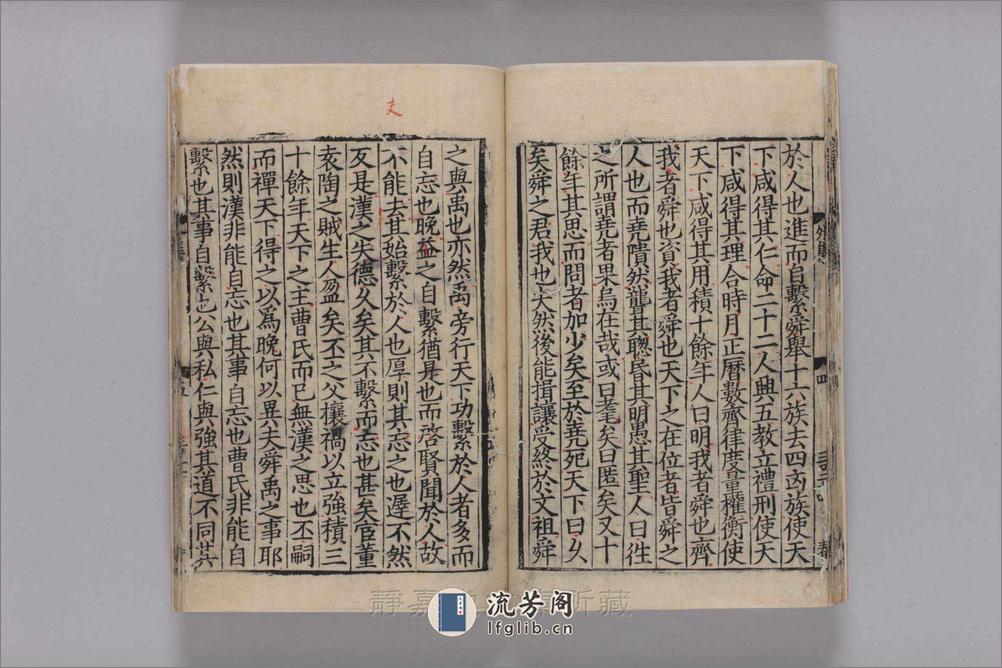 於人也進而自繫舜舉十六族去四凶族使天
下咸得其人命二十二人興五教立禮刑使天
下咸得其理合時月正曆數齊律度量權衡使
天下咸得其用積十餘年人曰明我者舜也齊
我者舜也資我者舜也天下之在位者皆舜之
人也而堯隤然聾其聰昏其明愚其聖人曰往
之所謂堯者果烏在哉或曰耄矣曰匿矣又十
餘年其思而問者加少矣至於堯死天下曰久
矣舜之君我也夫然後能揖讓受終於文祖舜
之與禹也亦然禹旁行天下功繫於人者多而
自忘也晚益之自繫猶是也而啓賢聞於人故
不能去其始繫於人也厚則其忘之也遲不然
反是漢之失德久矣其不繫而忘也甚矣宦董
袁陶之賊生人盈矣丕之父攘禍以立強積三
十餘年天下之主曹氏而已無漢之思也丕嗣
而禪天下得之以爲晚何以異夫舜禹之事耶
然則漢非能自忘也其事自忘也曹氏非能自
繫也其事自繫也公與私仁與強其道不同其
靜嘉 所藏
流芳阁
lfglib.cn